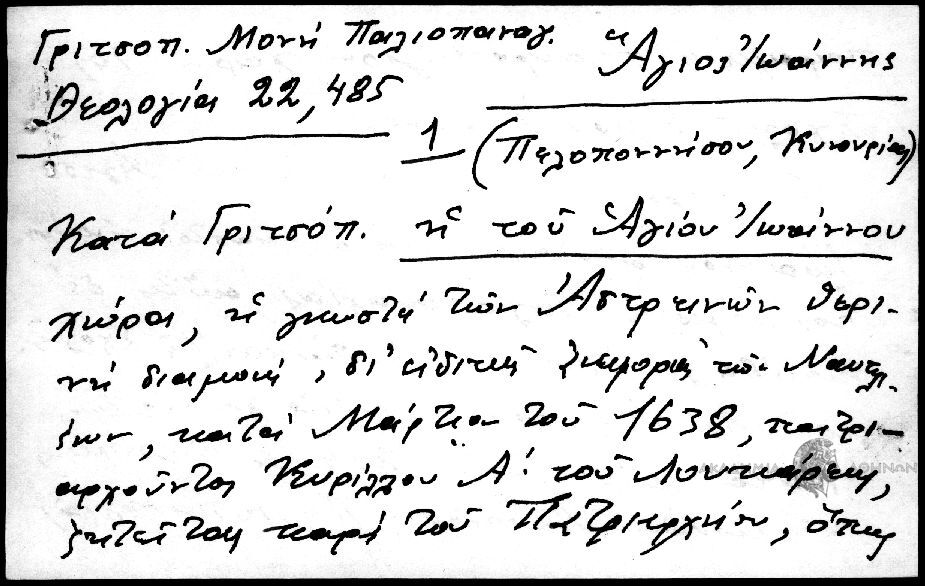 Γριτσοπ. Μονή Παλιοπαναγ.
Θεολογία 22, 485
Ἅγιος Ἰωάννης
1 (Πελοποννήσου, Κυνουρίας)
Κατά Γριτσόπ. ἡ τοῦ Ἁγίου Ἰωάννου
χώρα, ἡ γνωστή τῶν Ἀστρινῶν θερι-
νή διαμονή, δι' εἰδικῆς ἀναφορᾶς τῶν Ναυπλι-
έων, κατά Μάρτιον τοῦ 1638, πατρι-
αρχοῦντος Κυρίλλου Α΄ τοῦ Λουκάρεως,
ζητεῖται παρά τοῦ Πατριαρχείου, ὅπως